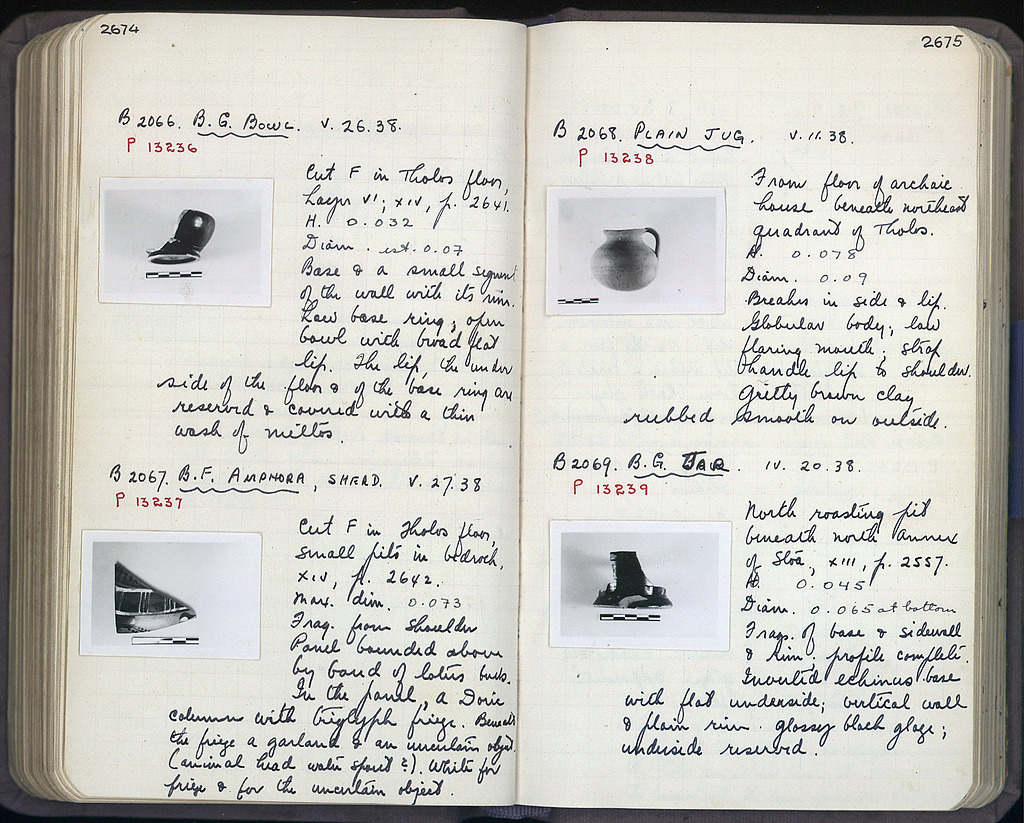 2674
B 2066. B.G. BOWL. V. 26.38.
P 13236
Cut F in Tholos floor,
Layer VI; XIV, p. 2641.
H. 0.032
Diam. est. 0.07
Base & a small segment
of the wall with its rim.
Low base ring; open
bowl with broad flat
lip. The lip, the under
side of the floor & of the base ring are
reserved & covered with a thin
wash of miltos.
B 2067. B.F. AMPHORA, SHERD. V. 27.38
P 13237
Cut F in Tholos floor,
small pits in bedrock,
XIV, p. 2642.
Max. dim. 0.073
Frag. from shoulder
Panel bounded above
by band of lotus buds.
In the panel, a Doric
column with triglyph frieze. Beneath
the frieze a garland & an uncertain object.
(animal head water spout?). White for
frieze & for the uncertain object.
2675
B 2068. PLAIN JUG. V. 11.38.
P 13238
From floor of archaic
house beneath northeast
quadrant of Tholos.
H. 0.078
Diam. 0.09
Breaks in side & lip.
Globular body; low
flaring mouth; strap
handle lip to shoulder.
Gritty brown clay
rubbed smooth on outside.
B 2069. B.G. JAR. IV. 20.38.
P 13239
North roasting pit
beneath north Annex
of Stoa, XIII, p. 2557.
H. 0.045
Diam. 0.065 at bottom
Frags. of base & sidewall
& rim. profile complete.
Inverted echinus base
with flat underside; vertical wall
& plain rim. glossy black glaze;
underside reserved.